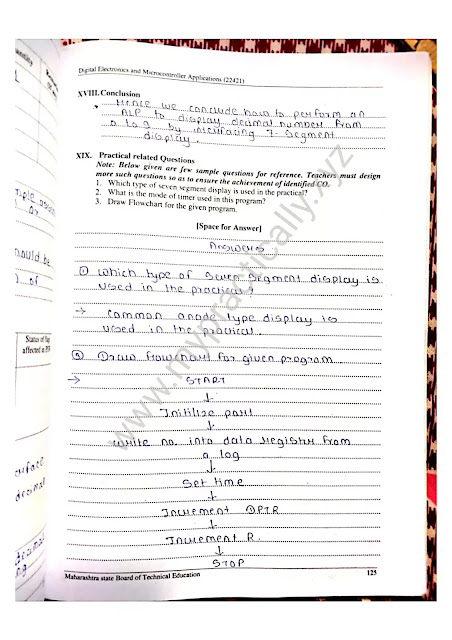 Digital Electronics and Microcontroller Applications (22421)
XVIII. Conclusion
Hence we conclude how to perform an
ALP to display decimal number from
0 to 9 by interfacing 7-segment
display.
XIX. Practical related Questions
Note: Below given are few sample questions for reference. Teachers must design
more such questions so as to ensure the achievement of identified CO.
1. Which type of seven segment display is used in the practical?
2. What is the mode of timer used in this program?
3. Draw Flowchart for the given program.
[Space for Answer]
Answers
① Which type of seven segment display is
used in the practical?
→ Common anode type display is
used in the practical.
③ Draw flowchart for given program
→ START
↓
Initilize port
↓
write no. into data register from
0 to 9
↓
Set time
↓
Increment DPTR
↓
Increment R.
↓
STOP
Maharashtra state Board of Technical Education 125
ould be
) of
Status of flag
decimal
www.mypractically.xyz